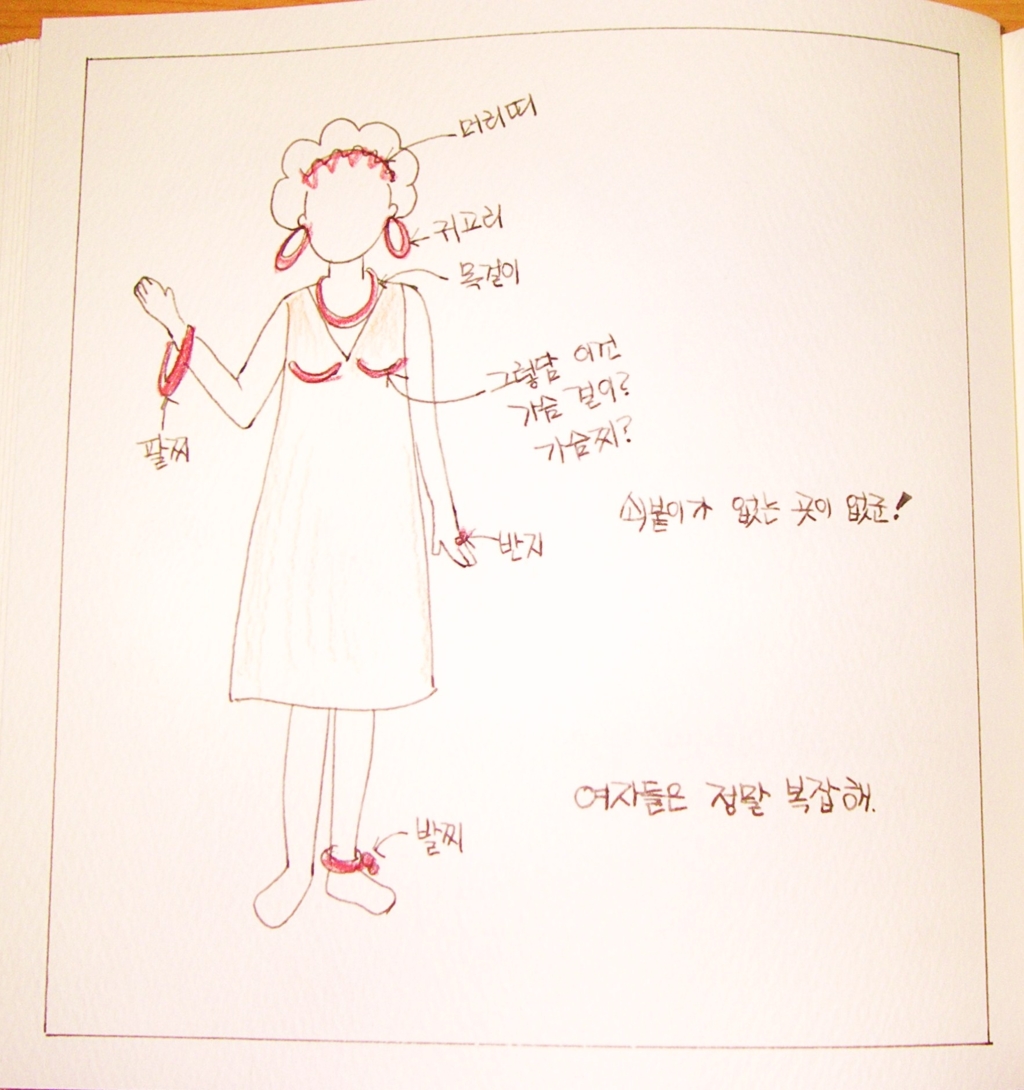 머리띠
귀고리
목걸이
그렇담 이건
가슴 걸이?
가슴찌?
팔찌
쇠붙이가 없는 곳이 없군!
반지
여자들은 정말 복잡해.
발찌